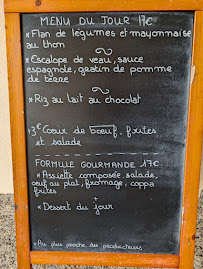 MENU DU JOUR 17€
*Flan de légumes et mayonnaise
au thon
*Escalope de veau, sauce
espagnole, gratin de pomme
de terre
*Riz au lait au chocolat
+3€ Cœur de bœuf, frites
et salade
FORMULE GOURMANDE 17€
*Assiette composée, salade,
oeuf au plat, fromage, coppa
frites
+
*Dessert du jour
*Au plus proche des producteurs